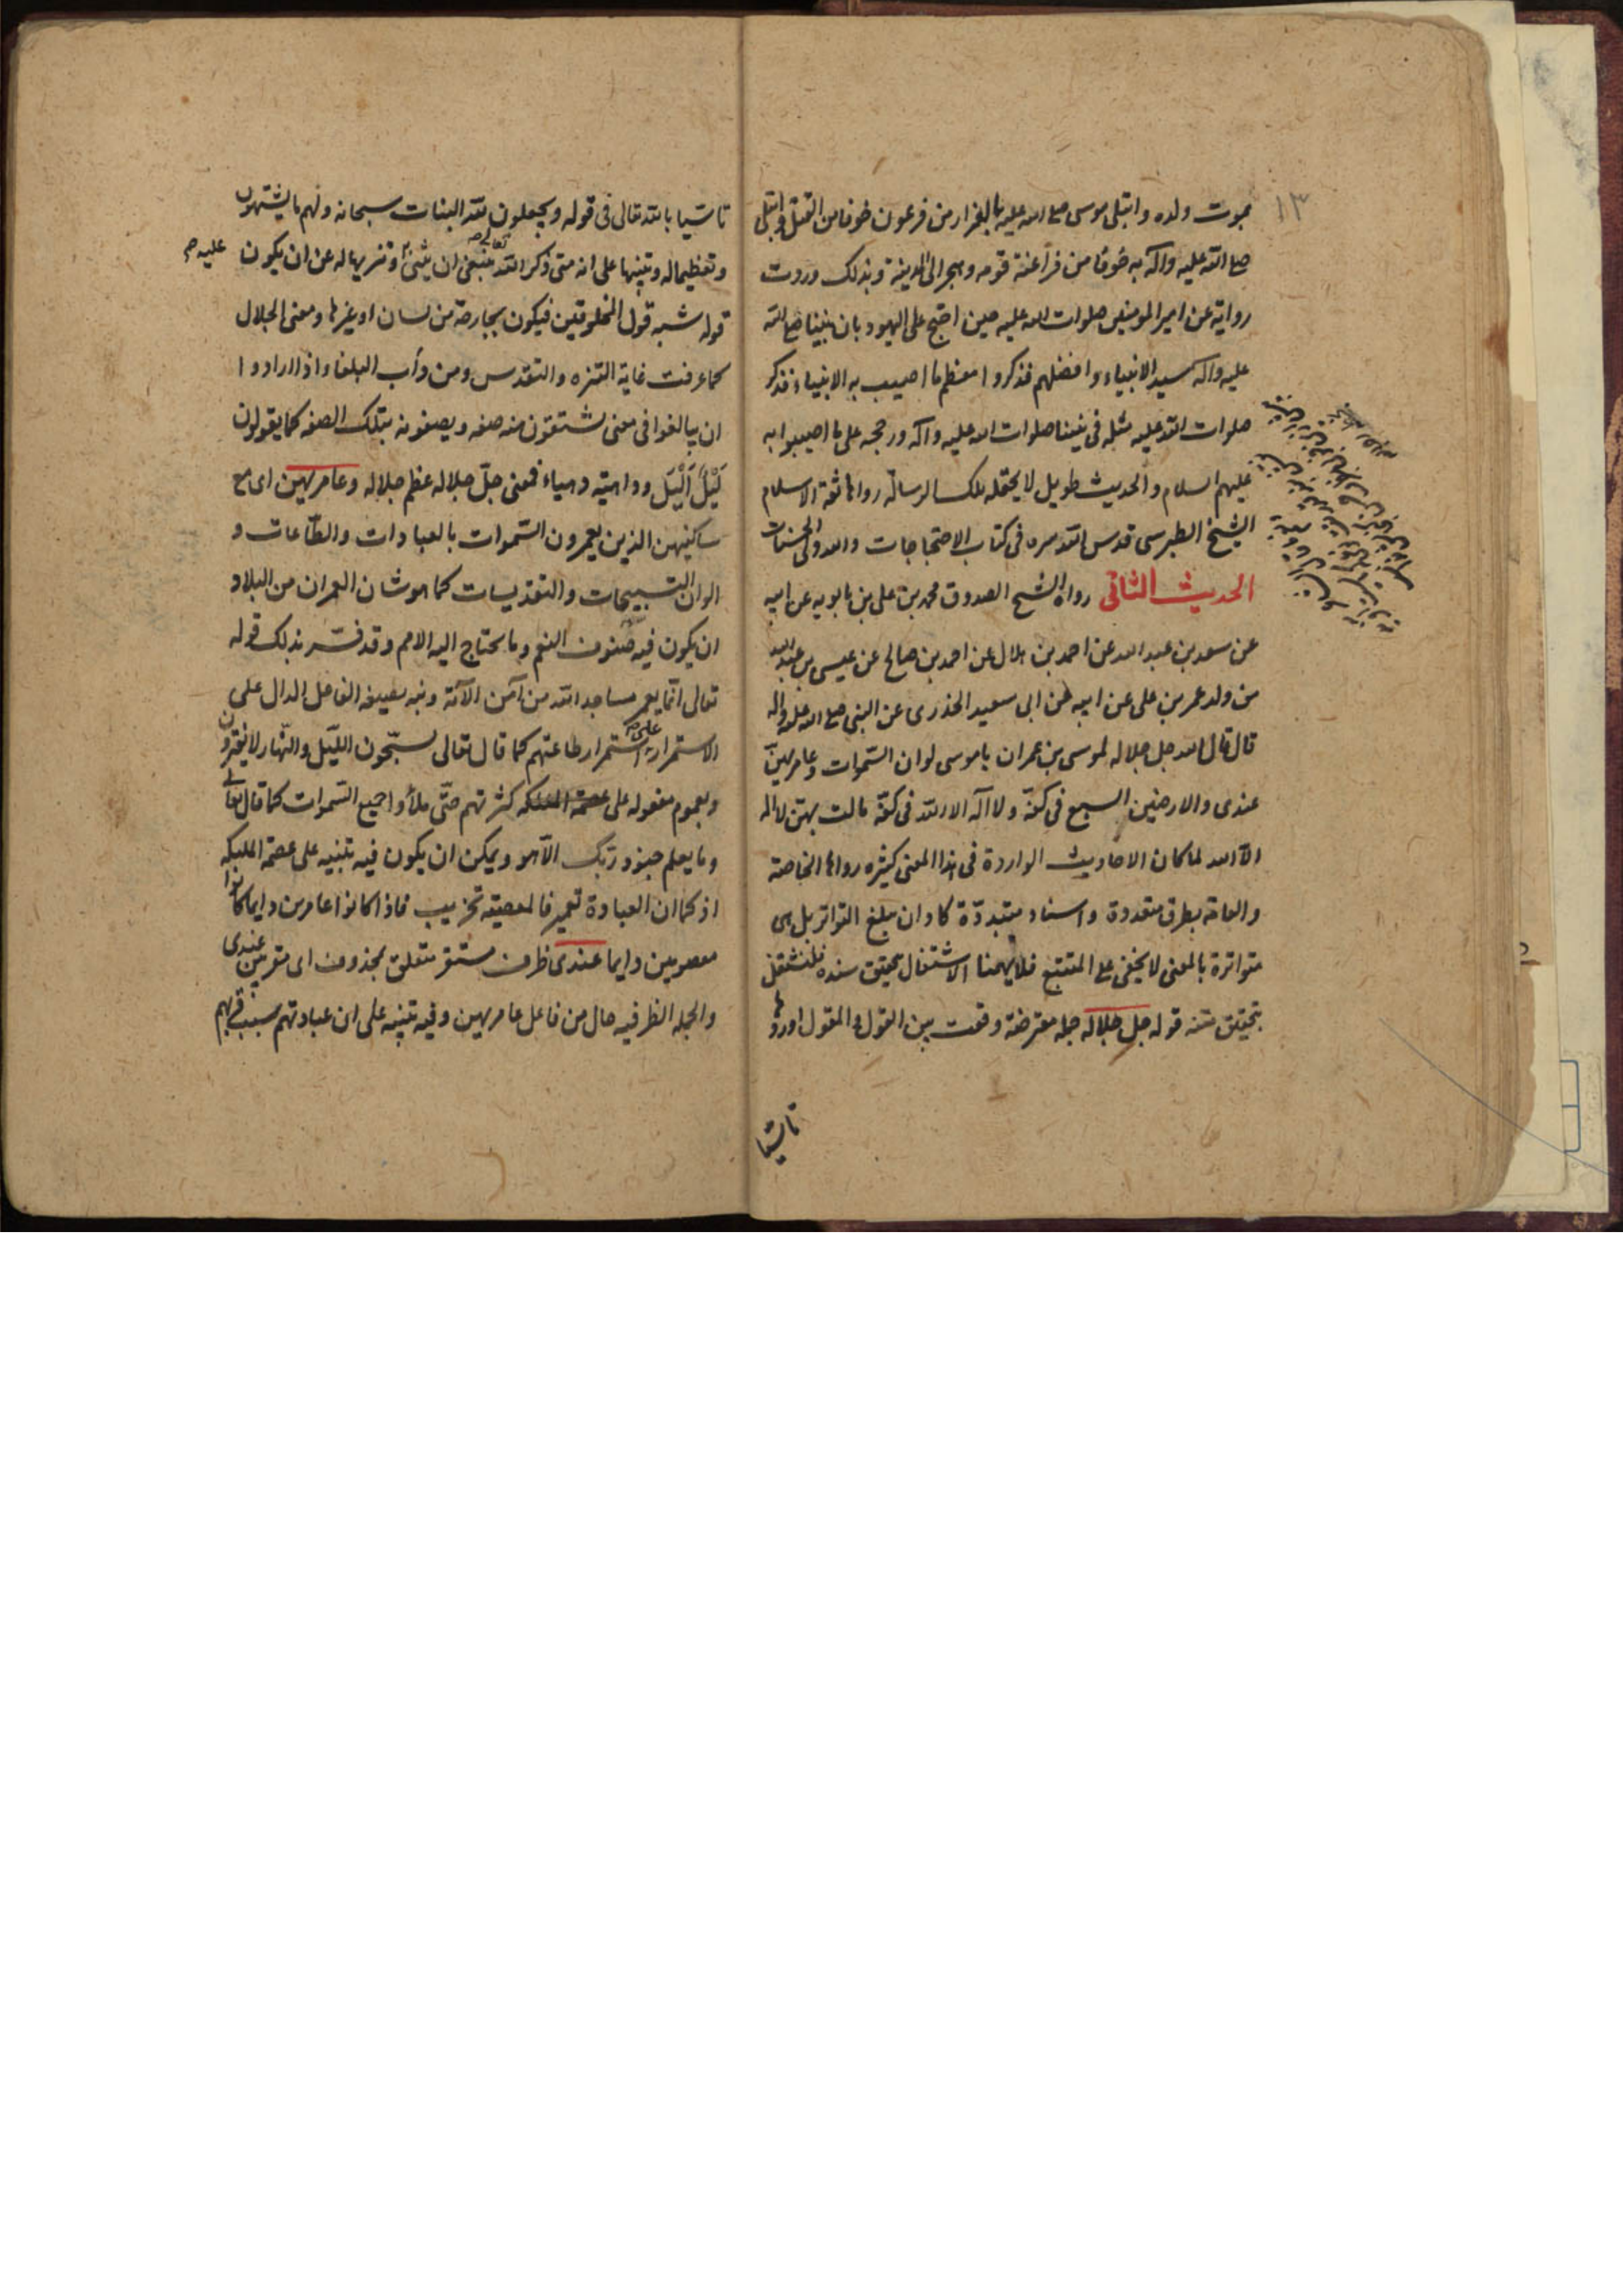 ١٣
بموت ولده وابتلى موسى صلى الله عليه بالفرار من فرعون خوفا من القتل وابتلى
صلى الله عليه وآله به خوفا من فراعنة قومه وهجر الى المدينة وبذلك وردت
رواية عن امير المومنين صلوات الله عليه حين احتج على اليهود بان نبينا صلى الله
عليه وآله سيد الانبياء وافضلهم فذكروا معظم ما اصيب به الانبياء فذكر
صلوات الله عليه مثله في نبينا صلوات الله عليه وآله ورجحه على ما اصيبوا به
عليهم السلام والحديث طويل لا يحتمله تلك الرسالة رواها ثقة الاسلام
الشيخ الطبرسى قدس الله سره فى كتاب الاحتجاجات والله ولى الحسنات
الحديث الثانى رواه الشيخ الصدوق محمد بن على بن بابويه عن ابيه
عن سعد بن عبد الله عن احمد بن هلال عن احمد بن صالح عن عيسى بن عبد الله
من ولد عمر بن على عن ابيه عن ابى سعيد الخذرى عن النبى صلى الله عليه وآله
قال قال الله جل جلاله لموسى بن عمران ياموسى لو ان السّموات وعامريهنّ
عندى والارضين السبع فى كفّة ولا آله الا الله فى كفّة مالت بهنّ لا اله
الا الله لما كان الاحاديث الواردة فى هذا المعنى كثيره رواها الخاصة
والعامة بطرق متعددة واسناد متبددّة كاد ان يبلغ التواتر بل هى
متواترة بالمعنى لا يخفى على المتتبع فلا يهمنا الاشتغال بتحقيق سنده فلنشتغل
بتحقيق متنه قوله جل جلاله جملة معترضة وقعت بين القول والمقول اوردها
تاسّيا
تاسّيا بالله تعالى فى قوله ويجعلون لله البنات سبحانه ولهم ما يشتهون
وتعظيما له وتنبيها على انه متى ذكر الله تعالى ينبغى ان يثنى عليه وتنزيها له عن ان يكون
قوله شبه قول المخلوقين فيكون بجارحة من لسان او غيرها ومعنى الجلال
كما عرفت غاية التنزه والتقدس ومن دأب البلغاء اذا ارادوا
ان يبالغوا فى معنى يشتقون منه صفه ويصفونه بتلك الصفه كما يقولون
لَيْلٌ اَلْيَل وداهيّه دهياء فمعنى جلّ جلاله عظم جلاله وعامريهن اى مع
ساكنيهن الذين يعمرون السّموات بالعبادات والطّاعات و
الوان التسبيحات والتقديسات كما هو شان العمران من البلاد
ان يكون فيه صنوف النعم وما يحتاج اليه الامم وقد فسّر بذلك قوله
تعالى انّما يعمر مساجد الله من آمن الآية ونبه بصيغه الفاعل الدال على
الاستمرار على استمرار طاعتهم كما قال تعالى يسبّحون اللّيل والنّهار لا يفترون
وبعموم مفعوله على كثرتهم حتّى ملأوا جميع السّموات كما قال تعالى
وما يعلم جنود ربّك الّا هو ويمكن ان يكون فيه تنبيه على عصمة الملئكه
اذ كما ان العبادة تعمير فالمعصيّه تخريب فاذا كانوا عامرين دايما كانوا
معصومين دايما عندى ظرف مستقر متعلق بمحذوف اى مقربين عندى
والجمله الظرفيه حال من فاعل عامريهن وفيه تنبيه على ان عبادتهم سبب قربهم